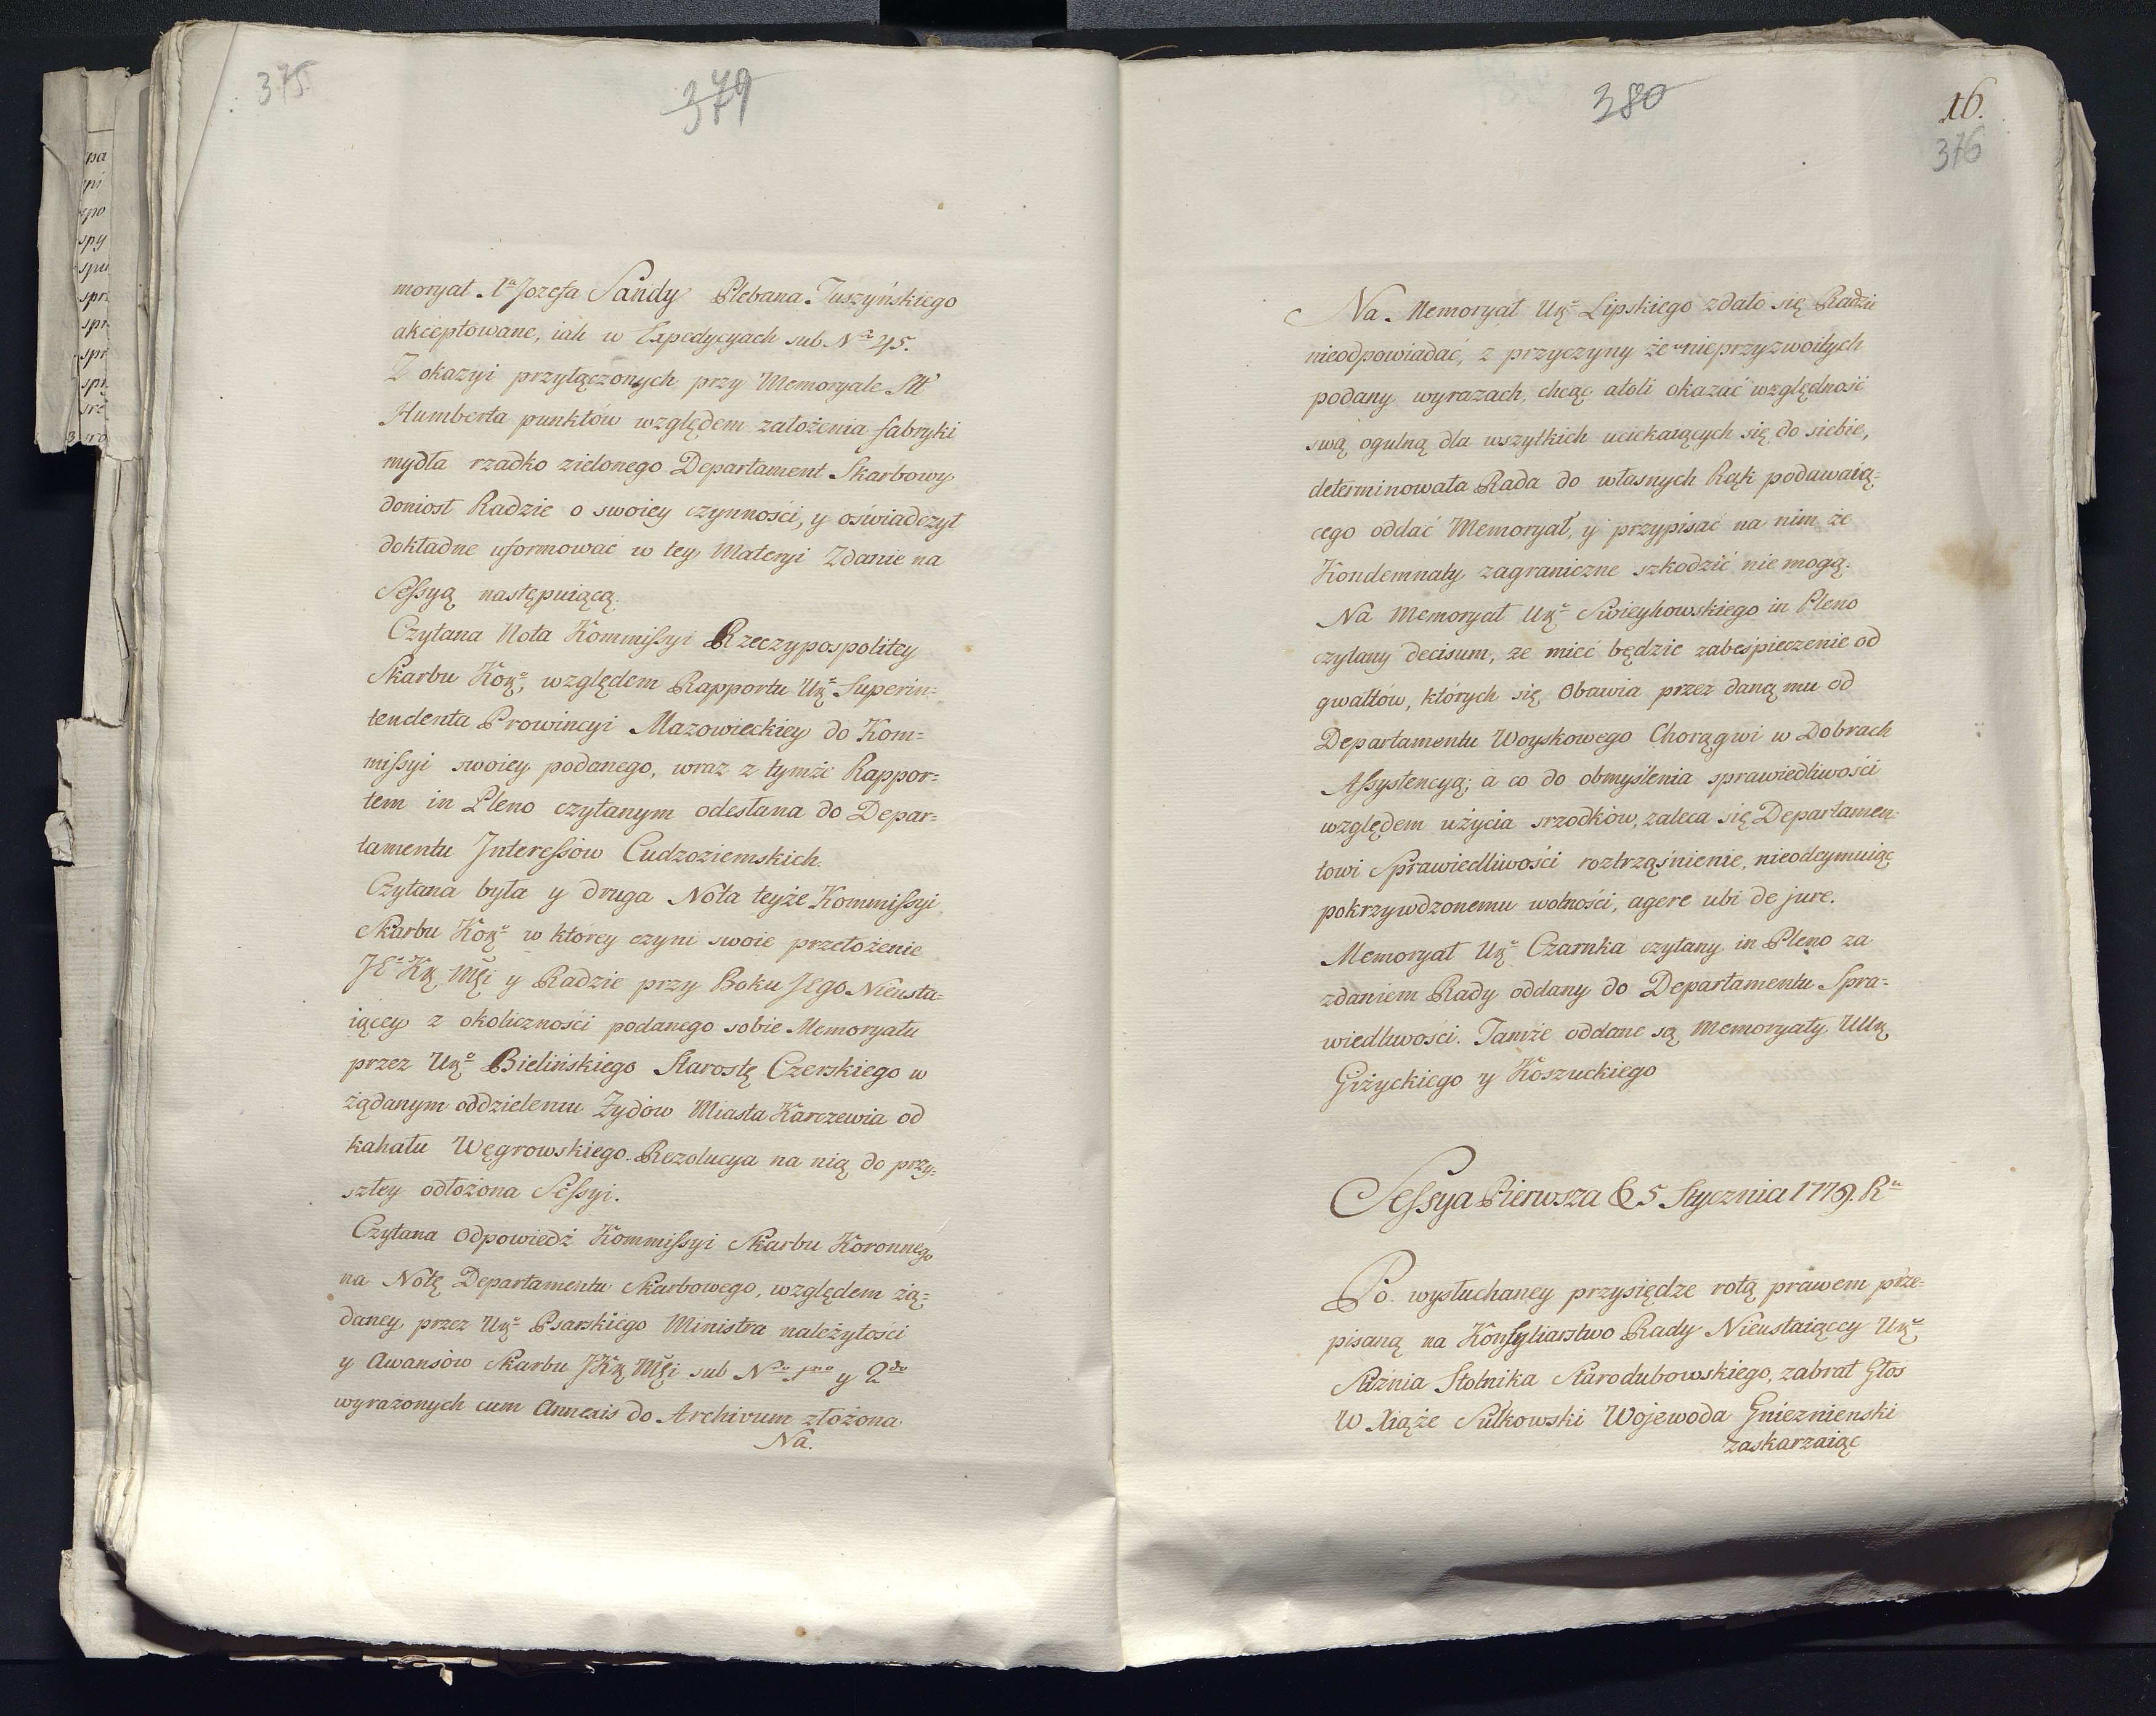 375.
379
moryał Xa Jozefa Sandy Plebana Tuszyńskiego
akceptowane, iak w Expedycyach sub No 45.
Z okazyi przyłączonych przy Memoryale
Humberta punktów względem założenia fabryki
mydła rzadko zielonego Departament Skarbowy
doniosł Radzie o swoiey czynności, y oświadczył
dokładne uformować w tey Materyi Zdanie na
Sessyą następuiącą.
Czytana Nota Kommissyi Rzeczypospolitey
Skarbu Kor: względem Rapportu Ur: Superin=
tendenta Prowincyi Mazowieckiey do Kom=
missyi swoiey podanego, wraz z tymże Rappor=
tem in Pleno czytanym odesłana do Depar=
tamentu Interessów Cudzoziemskich.
Czytana była y druga Nota teyże Kommissyi
Skarbu Kor: w którey czyni swoie przełożenie
JK Mci y Radzie przy Boku Jego Nieusta=
iącey z okoliczności podanego sobie Memoryału
przez Ur: Bielińskiego Starostę Czerskiego w
żądanym oddzieleniu Żydów Miasta Karczewia od
kahału Węgrowskiego. Rezolucya na nią do przy=
szłey odłożona Sessyi.
Czytana Odpowiedź Kommissyi Skarbu Koronnego
na Notę Departamentu Skarbowego, względem żą=
daney przez Ur: Psarskiego Ministra należytości
y Awansów Skarbu JK Mci sub No 1mo y 2do
wyrażonych cum Annexis do Archivum złożona.
Na.
380
16.
376
Na Memoryał Ur: Lipskiego zdało się Radzie
nieodpowiadać, z przyczyny że w nieprzyzwoitych
podany wyrazach, chcąc atoli okazać względność
swą ogulną dla wszytkich uciekaiących się do siebie,
determinowała Rada do własnych Rąk podawaią=
cego oddać Memoryał, y przypisać na nim że
Kondemnaty zagraniczne szkodzić nie mogą.
Na Memoryał Ur: Swieykowskiego in Pleno
czytany decisum, że mieć będzie zabespieczenie od
gwałtów, których się obawia przez daną mu od
Departamentu Woyskowego Chorągwi w Dobrach
Assystencyą; a co do obmyślenia sprawiedliwości
względem użycia srzodków, zaleca się Departamen=
towi Sprawiedliwości roztrząśnienie, nieodeymuiąc
pokrzywdzonemu wolności, agere ubi de jure.
Memoryał Ur: Czarnka czytany in Pleno za
zdaniem Rady oddany do Departamentu Spra=
wiedliwości. Tamże oddane są Memoryały UUr:
Giżyckiego y Koszuckiego
Sessya Pierwsza D. 5 Stycznia 1779. Ru
Po wysłuchaney przysiędze rotą prawem prze=
pisaną na Konsyliarstwo Rady Nieustaiącey Ur:
Stolnika Starodubowskiego, zabrał Głos
W Xiąże Sułkowski Wojewoda Gnieznienski
zaskarzaiąc